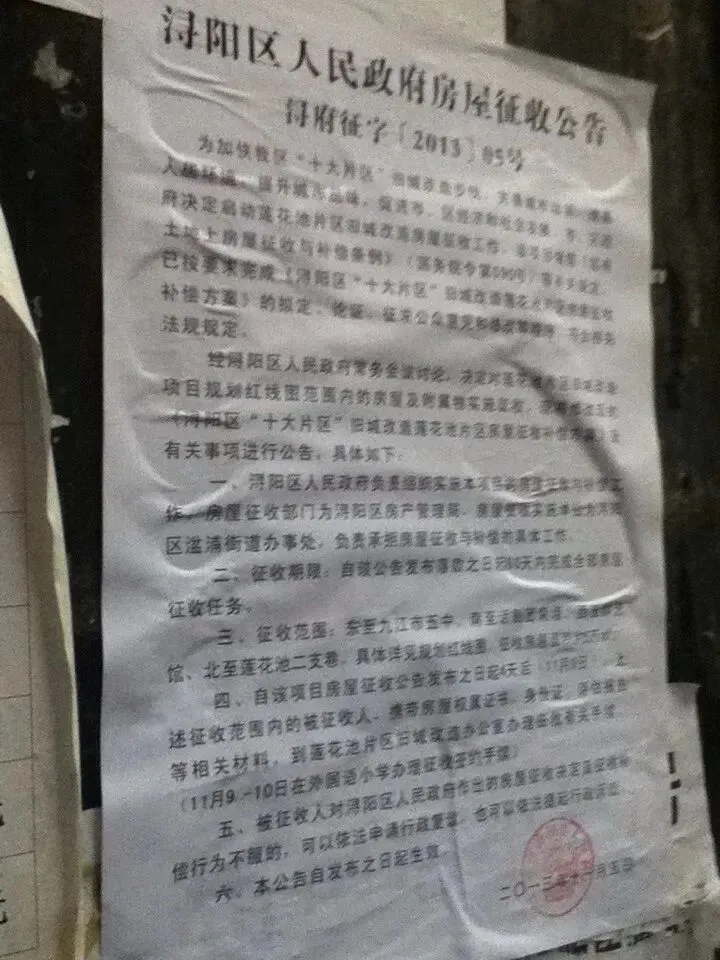 浔阳区人民政府房屋征收公告
浔府征字〔2013〕05号
为加快我区“十大片区”旧城改造步伐，完善城市
人居环境，提升城市品味，促进市、区经济和社会发展，市、
府决定启动莲花池片区旧城改造房屋征收工作。
土地上房屋征收与补偿条例》（国务院令第590号）等有关规定，
已按要求完成《浔阳区“十大片区”旧城改造莲花池片区房屋征收
补偿方案》的拟定、论证、征求公众意见和修改等程序，
法规规定。
经浔阳区人民政府常务会议讨论，决定对莲花池片区旧城改造
项目规划红线图范围内的房屋及附属物实施征收，
《浔阳区“十大片区”旧城改造莲花池片区房屋征收补偿方案》及
有关事项进行公告，具体如下：
一、浔阳区人民政府负责组织实施本项目的房屋征收与补偿工
作，房屋征收部门为浔阳区房产管理局，房屋征收实施单位为浔阳
区湓浦街道办事处，负责承担房屋征收与补偿的具体工作。
二、征收期限：自该公告发布事数之日起 天内完成全部房屋
征收任务。
三、征收范围：东至九江市五中，南至
馆、北至莲花池二支巷，具体详见规划红线图，征收房屋
四、自该项目房屋征收公告发布之日起4天后（11月9日），上
述征收范围内的被征收人，携带房屋权属证书、身份证、
等相关材料，到莲花池片区旧城改造办公室办理征收有关手续
（11月9－10日在外国语小学办理征收签约手续）
五、被征收人对浔阳区人民政府作出的房屋征收决定及征收补
偿行为不服的，可以依法申请行政复议，也可以依法提起行政诉讼
六、本公告自发布之日起生效
二〇一三年十一月五日